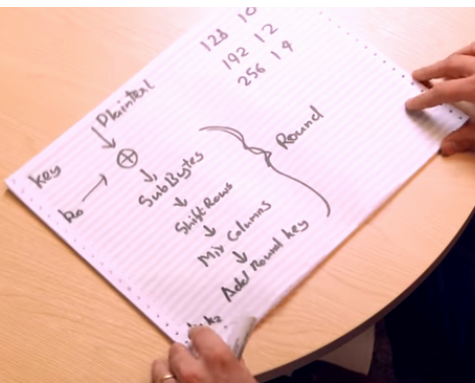 128 10
192 12
256 14
Plaintext
key
k₀
SubBytes
Shift Rows
Mix Columns
Add Round key
Round